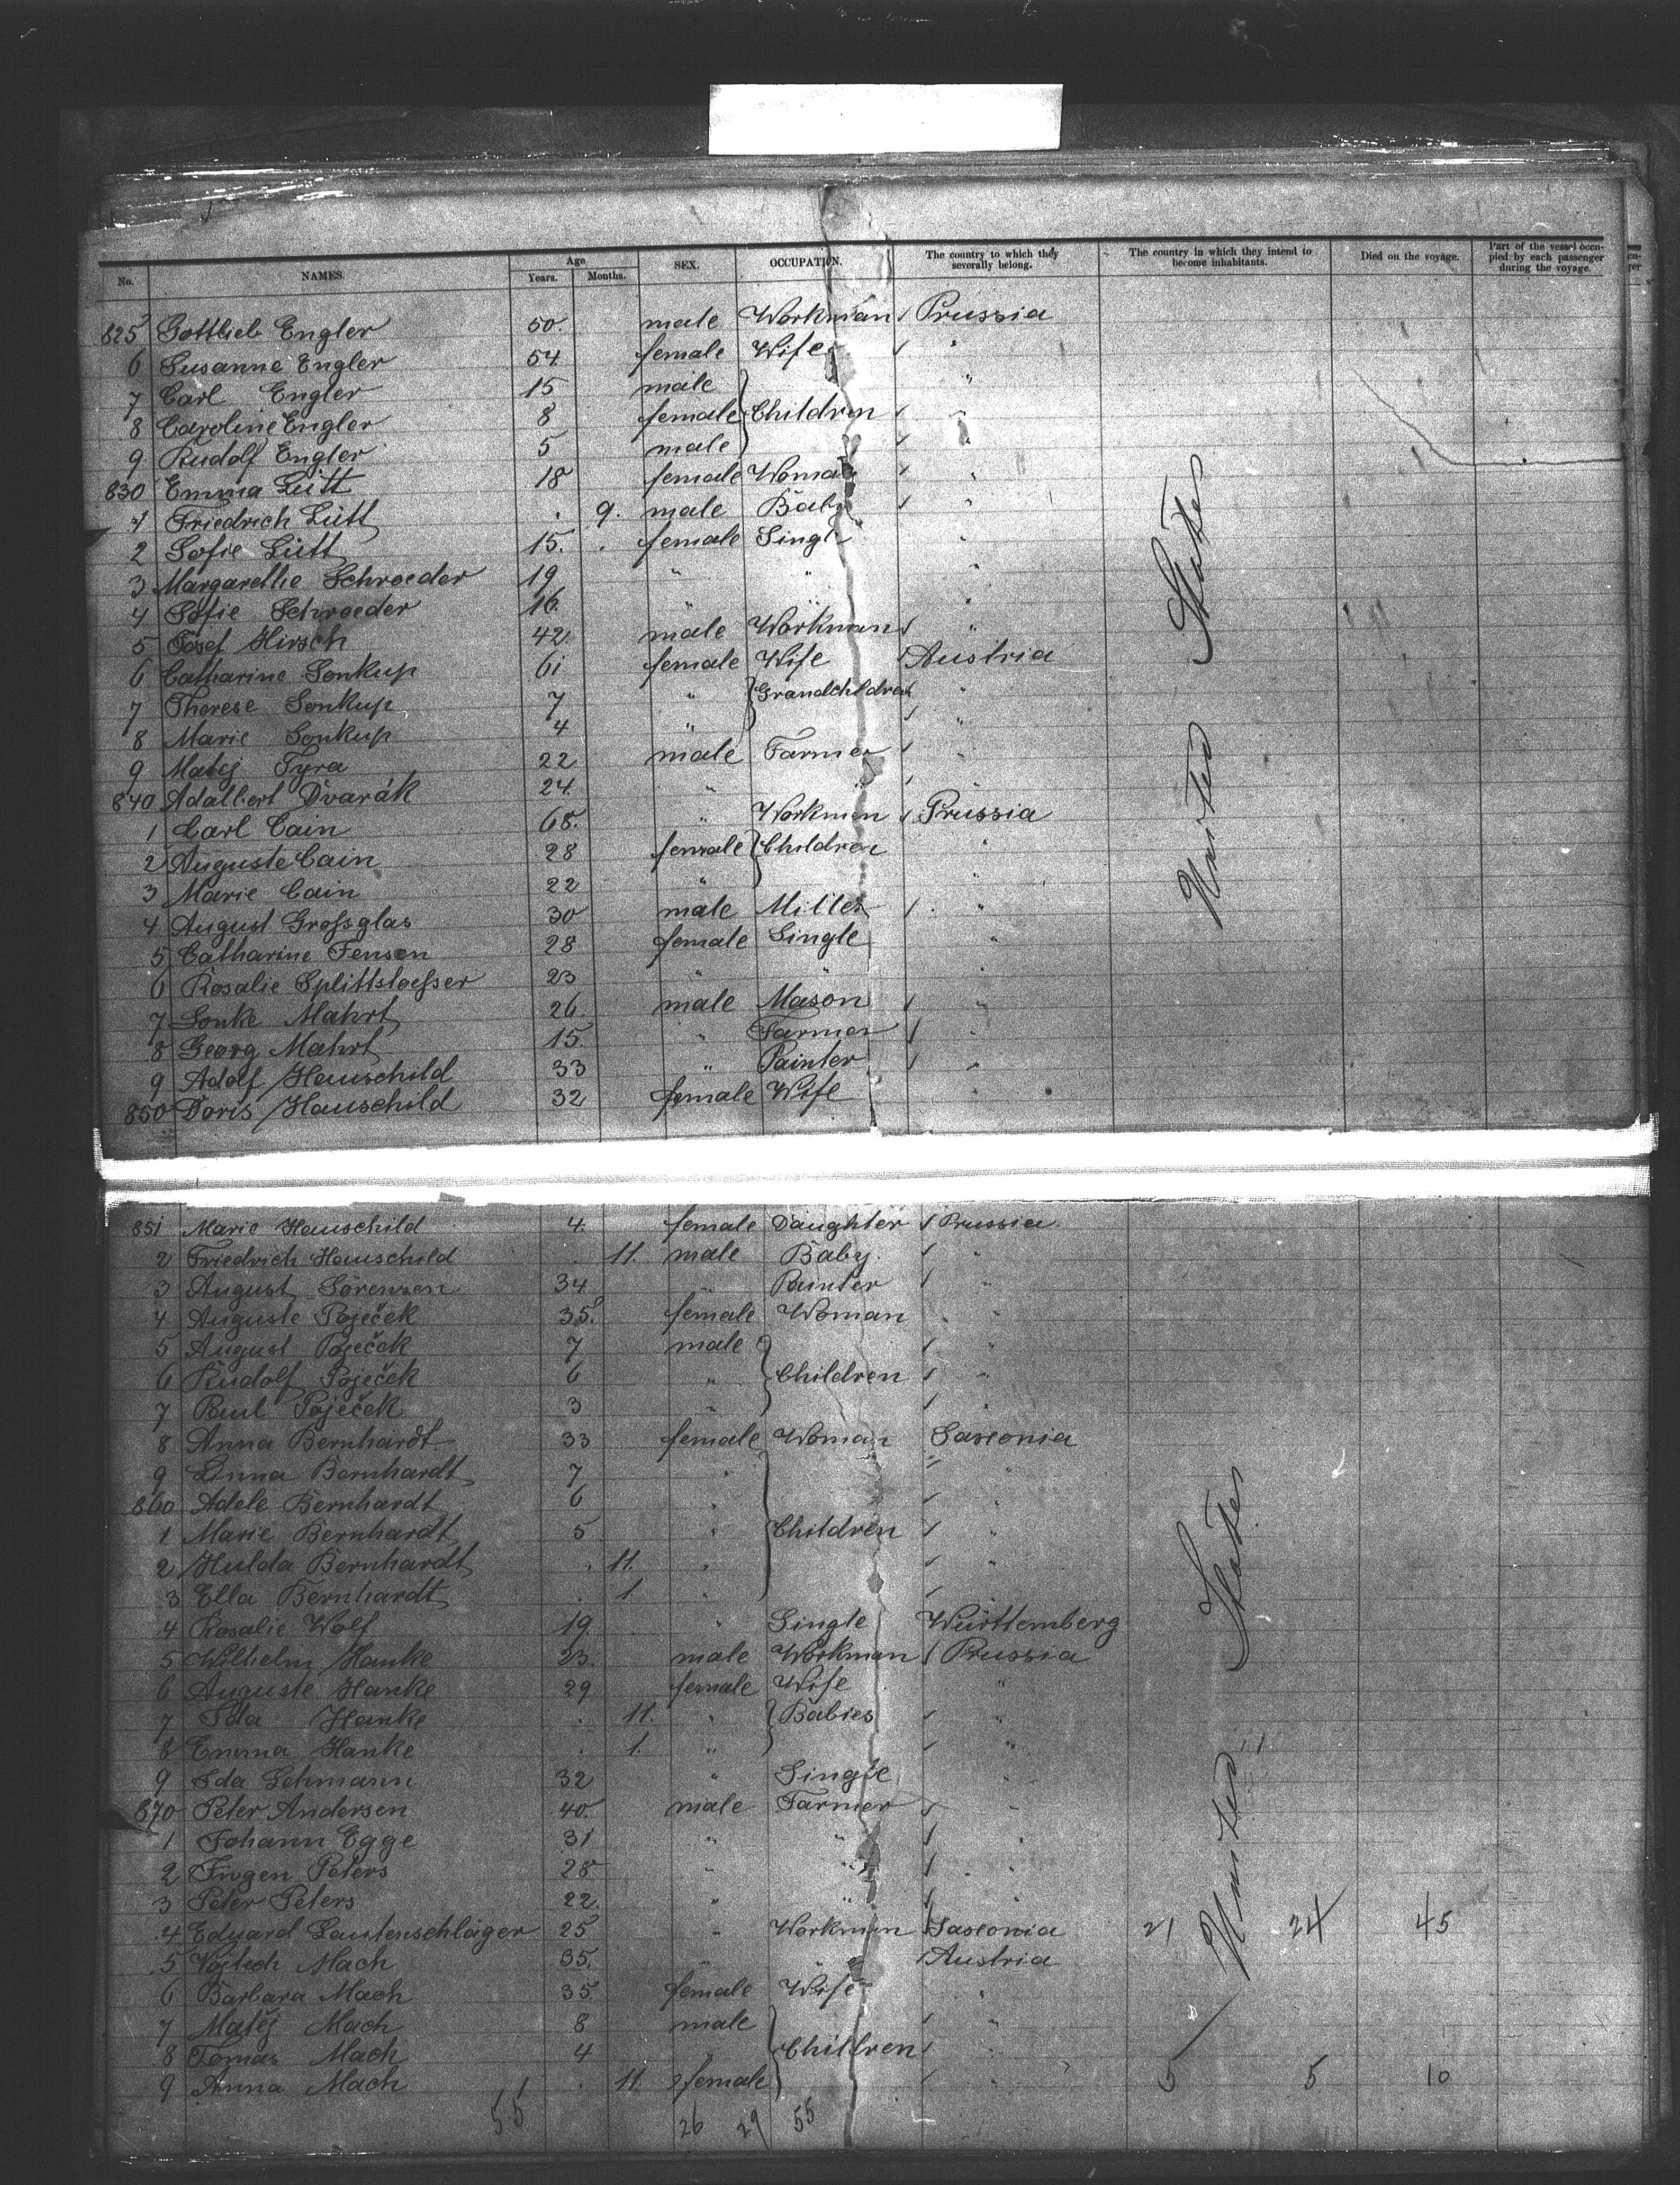 No. NAMES. Age Years. Months. SEX. OCCUPATION. The country to which they severally belong. The country in which they intend to become inhabitants. Died on the voyage. Part of the vessel occupied by each passenger during the voyage.
825 Gottlieb Engler 50. male Workman Prussia
6 Susanne Engler 54 female Wife "
7 Carl Engler 15 male "
8 Caroline Engler 8 female Children "
9 Rudolf Engler 5 male "
830 Emma Lütt 18 female Woman "
1 Friedrich Lütt . 9. male Baby "
2 Sofie Lütt 15. . female Single "
3 Margarethe Schroeder 19 " " "
4 Sofie Schroeder 16. " " "
5 Josef Hirsch 42. male Workman "
6 Catharine Sonkup 61 female Wife Austria
7 Therese Sonkup 7 " Grandchildren "
8 Marie Sonkup 4 " "
9 Matej Tyra 22 male Farmer "
840 Adalbert Dvarák 24. " " "
1 Carl Cain 68. " Workmen Prussia
2 Auguste Cain 28 female Children "
3 Marie Cain 22 " "
4 August Grossglas 30 male Miller "
5 Catharine Jensen 28 female Single "
6 Rosalie Splittstoesser 23 " " "
7 Sonke Mahrt 26. male Mason "
8 Georg Mahrt 15. " Farmer "
9 Adolf Hauschild 33 " Painter "
850 Doris Hauschild 32 female Wife "
United States
851 Marie Hauschild 4. female Daughter Prussia
2 Friedrich Hauschild . 11. male Baby. "
3 August Sörensen 34 " Painter "
4 Auguste Poječek 35. female Woman "
5 August Poječek 7 male "
6 Rudolf Poječek 6 " Children "
7 Paul Poječek 3 " "
8 Anna Bernhardt 33 female Woman Saxonia
9 Linna Bernhardt 7 " "
860 Adele Bernhardt 6 " "
1 Marie Bernhardt 5 " Children "
2 Hulda Bernhardt . 11. " "
3 Ella Bernhardt . 1. " "
4 Rosalie Wolf 19. " Single Württemberg
5 Wilhelm Hanke 23. male Workman Prussia
6 Auguste Hanke 29 female Wife "
7 Ida Hanke . 11. " Babies "
8 Emma Hanke . 1. " "
9 Ida Lehmann 32 " Single "
870 Peter Andersen 40. male Farmer "
1 Johann Egge 31 " " "
2 Jwgen Peters 28 " " "
3 Peter Peters 22. " " "
4 Eduard Lautenschläger 25 " Workmen Saxonia 21 24 45
5 Vojtech Mach 35. " " Austria
6 Barbara Mach 35. female Wife "
7 Matěj Mach 8 male "
8 Tomas Mach 4 " Children "
9 Anna Mach . 11. female " 5 5 10
United States
55 26 29 55